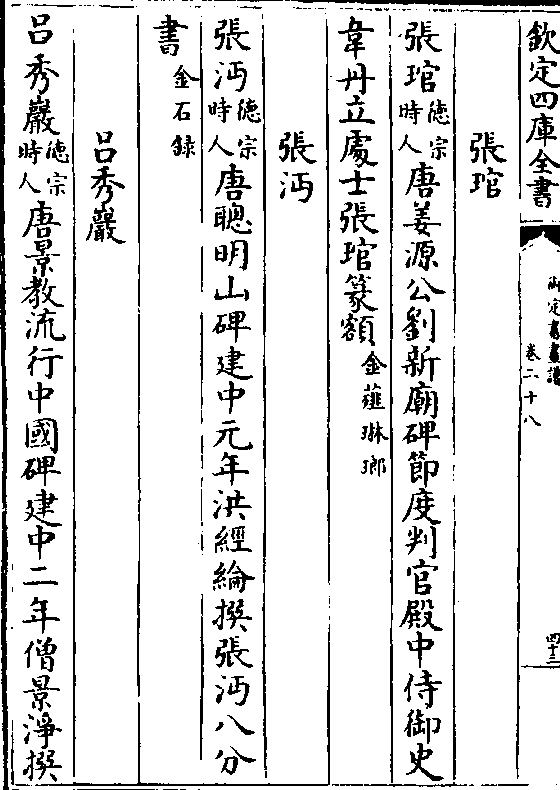 欽定四庫全書
御定書畫譜
卷二十八
四十三
張琯
張琯德宗時人唐姜源公劉新廟碑節度判官殿中侍御史
韋丹立處士張琯篆額金薤琳瑯
張沔
張沔德宗時人唐聰明山碑建中元年洪經綸撰張沔八分
書金石録
吕秀巖
吕秀巖德宗時人唐景教流行中國碑建中二年僧景淨撰